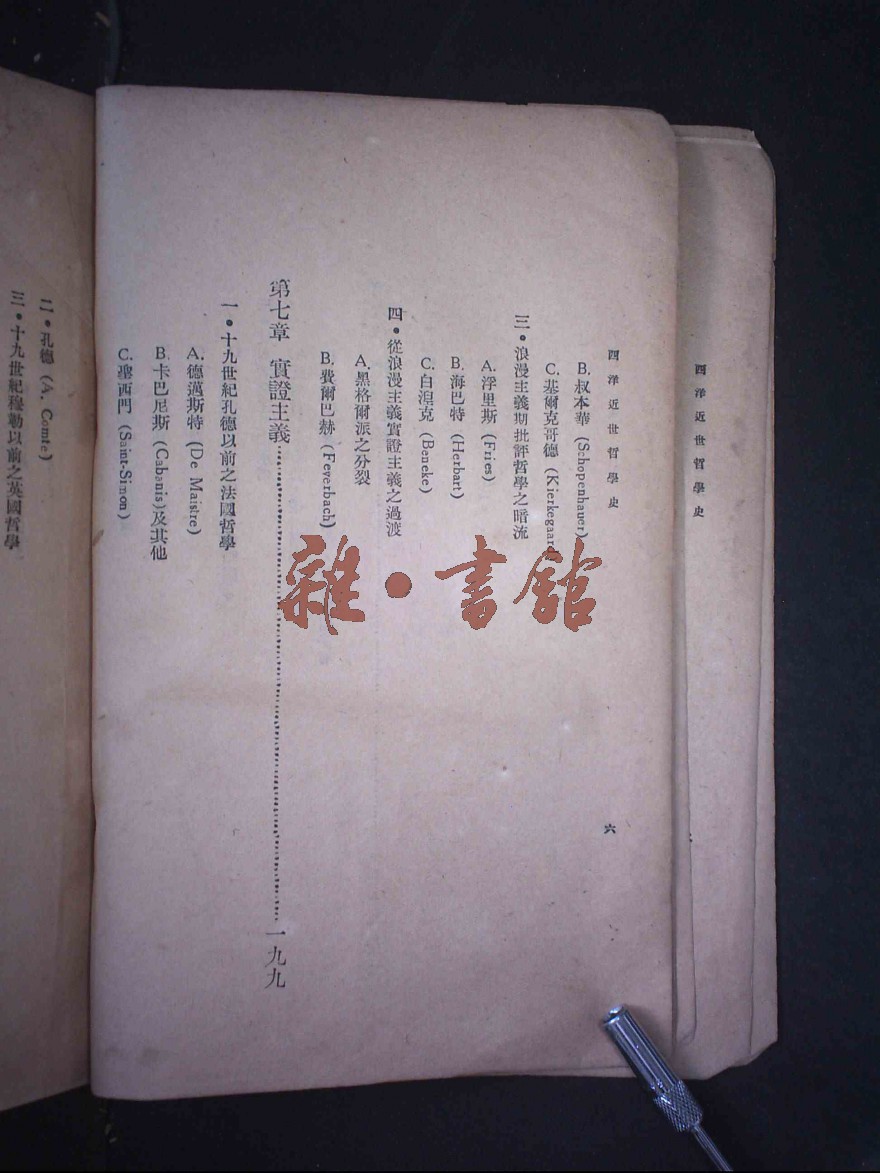 西洋近世哲學史
西洋近世哲學史
六
B. 叔本華 (Schopenhauer)
C. 基爾克哥德 (Kierkegaard)
三・浪漫主義期批評哲學之暗流
A. 浮里斯 (Fries)
B. 海巴特 (Herbart)
C. 白湼克 (Beneke)
四・從浪漫主義實證主義之過渡
A. 黑格爾派之分裂
B. 費爾巴赫 (Feverbach)
第七章 實證主義……一九九
一・十九世紀孔德以前之法國哲學
A. 德邁斯特 (De Maistre)
B. 卡巴尼斯 (Cabanis) 及其他
C. 聖西門 (Saint-Simon)
二・孔德 (A. Comte)
三・十九世紀穆勒以前之英國哲學
雜・書館